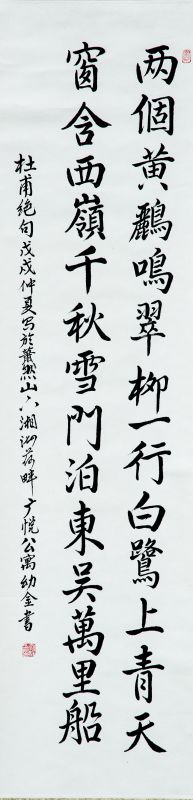 两個黄鸝鳴翠柳一行白鷺上青天
窗含西嶺千秋雪門泊東吳萬里船
杜甫絶句戊戌仲夏写於蕭然山下湘湖荷畔广悦公寓幼金書